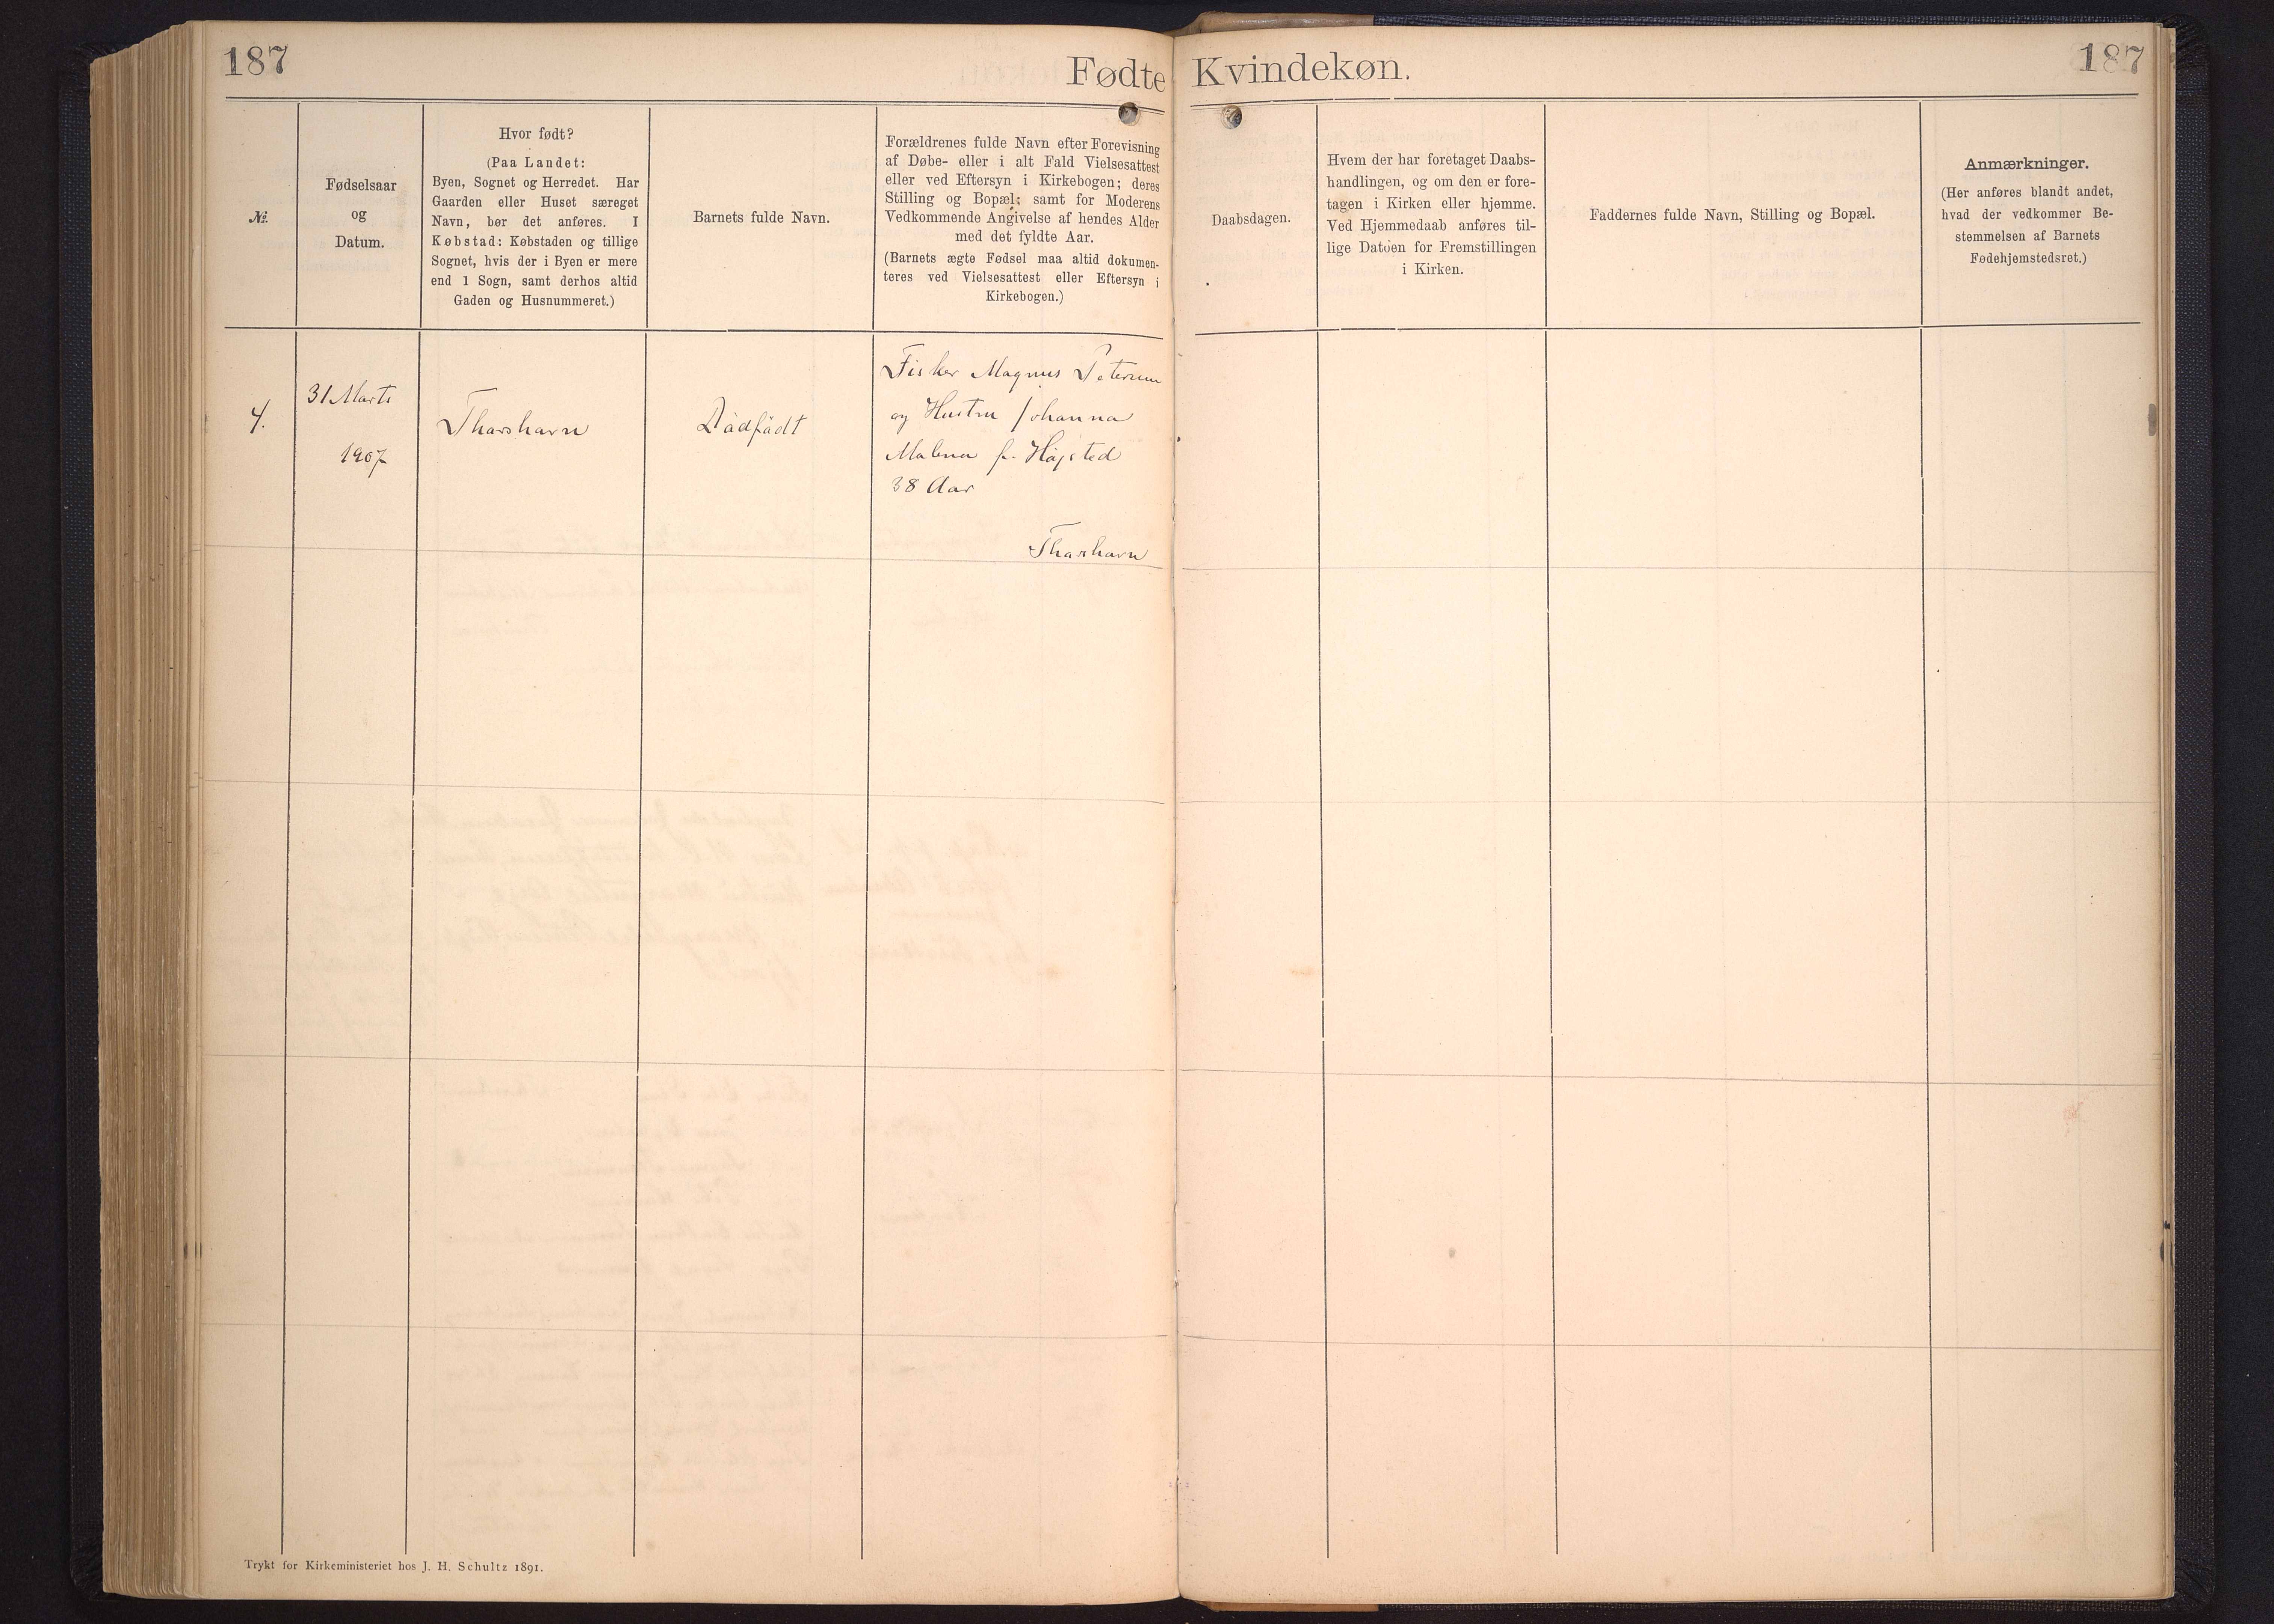 187
Fødte Kvindekøn.
187
№.
Fødselsaar
og
Datum.
Hvor født?
(Paa Landet:
Byen, Sognet og Herredet. Har
Gaarden eller Huset særeget
Navn, bør det anføres. I
Købstad: Købstaden og tillige
Sognet, hvis der i Byen er mere
end 1 Sogn, samt derhos altid
Gaden og Husnummeret.)
Barnets fulde Navn.
Forældrenes fulde Navn efter Forevisning
af Døbe- eller i alt Fald Vielsesattest
eller ved Eftersyn i Kirkebogen; deres
Stilling og Bopæl; samt for Moderens
Vedkommende Angivelse af hendes Alder
med det fyldte Aar.
(Barnets ægte Fødsel maa altid dokumen-
teres ved Vielsesattest eller Eftersyn i
Kirkebogen.)
Daabsdagen.
Hvem der har foretaget Daabs-
handlingen, og om den er fore-
tagen i Kirken eller hjemme.
Ved Hjemmedaab anføres til-
lige Datoen for Fremstillingen
i Kirken.
Faddernes fulde Navn, Stilling og Bopæl.
Anmærkninger.
(Her anføres blandt andet,
hvad der vedkommer Be-
stemmelsen af Barnets
Fødehjemstedsret.)
4.
31 Marts
1907
Thorshavn
Dødfødt
Fisker Magnus Petersen
og Hustru Johanna
Malena f. Højsted
38 Aar
Thorshavn
Trykt for Kirkeministeriet hos J. H. Schultz 1891.